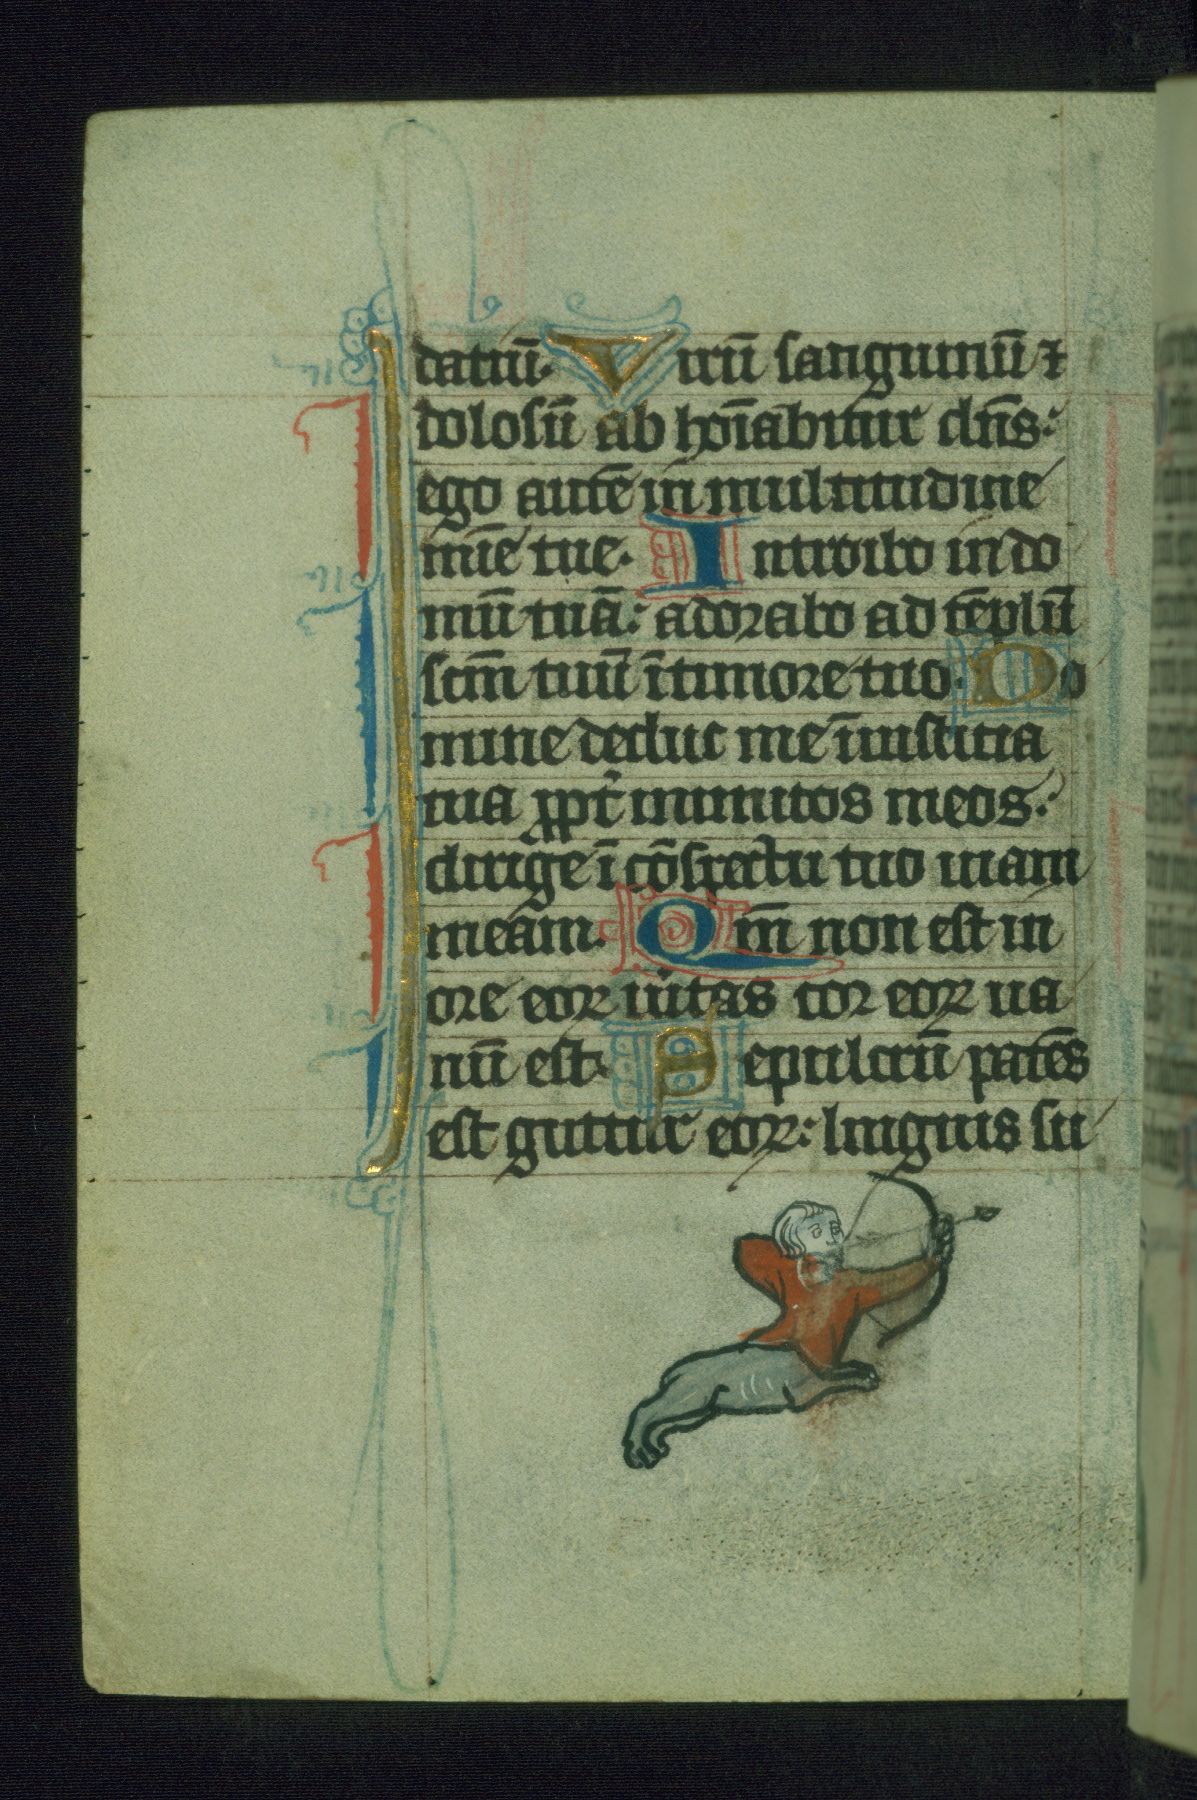 datiū. Virū sanguinū ⁊
dolosū abhoīabitur dn̄s:
ego autē in multitudine
mīe tue. Introibo in do
mū tuā: adorabo ad tēplū
scm̄ tuū ī timore tuo. Do
mine deduc me ī iusticia
tua ꝓpt̄ inimicos meos:
dirige ī cōspectu tuo uiam
meam. Qm̄ non est in
ore eoꝝ ūitas cor eoꝝ ua
nū est. Sepulcrū patēs
est guttur eoꝝ: linguis su